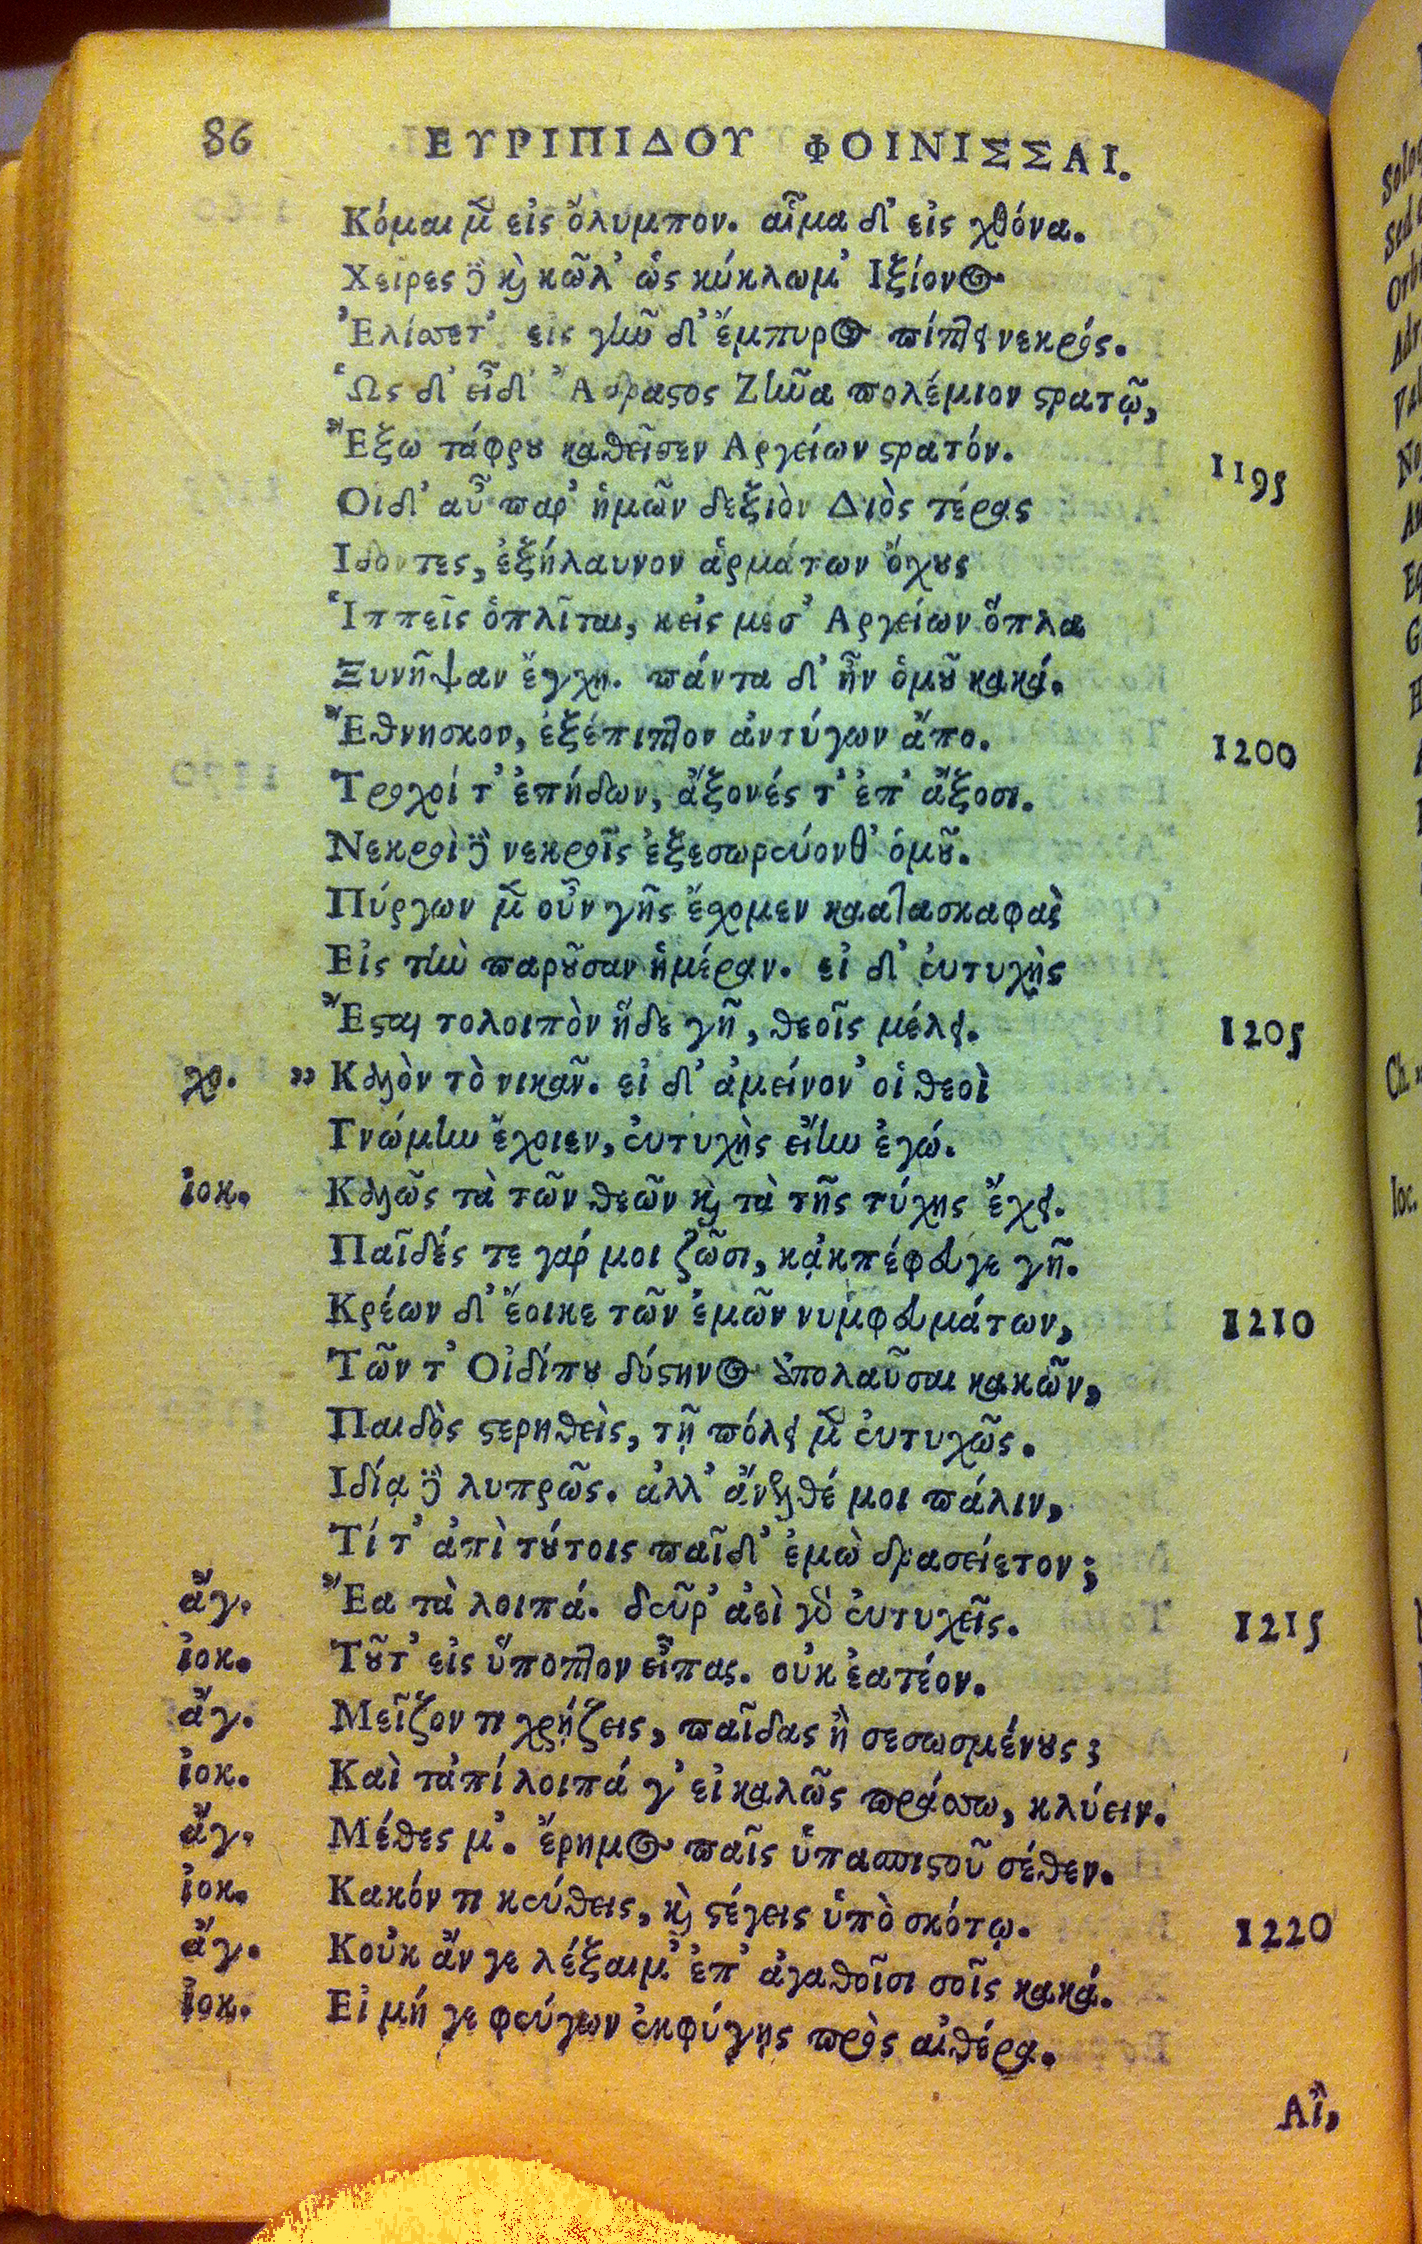 86 ΕΥΡΙΠΙΔΟΥ ΦΟΙΝΙΣΣΑΙ.
Κόμαι μὲν εἰς ὄλυμπον. αἷμα δ' εἰς χθόνα.
Χεῖρες δὲ καὶ κῶλ' ὡς κύκλωμ' Ιξίονος
Ἑλίσσετ' εἰς γῆν δ' ἔμπυρος πίπτει νεκρός.
Ὡς δ' εἶδ' Ἄδραστος Ζῆνα πολέμιον στρατῷ,
Ἔξω τάφρου καθεῖσεν Αργείων στρατόν. 1195
Οἱ δ' αὖ παρ' ἡμῶν δεξιὸν Διὸς τέρας
Ιδόντες, ἐξήλαυνον ἁρμάτων ὄχους
Ἱππεῖς ὁπλῖται, κεἰς μέσ' Αργείων ὅπλα
Ξυνῆψαν ἔγχη. πάντα δ' ἦν ὁμοῦ κακά.
Ἔθνησκον, ἐξέπιπτον ἀντύγων ἄπο. 1200
Τροχοί τ' ἐπήδων, ἄξονές τ' ἐπ' ἄξοσι.
Νεκροὶ δὲ νεκροῖς ἐξεσωρεύονθ' ὁμοῦ.
Πύργων μὲν οὖν γῆς ἔχομεν κατασκαφὰς
Εἰς τὴν παροῦσαν ἡμέραν. εἰ δ' εὐτυχὴς
Ἔσται τολοιπὸν ἥδε γῆ, θεοῖς μέλει. 1205
χο. ,, Καλὸν τὸ νικᾶν. εἰ δ' ἀμείνον' οἱ θεοὶ
Γνώμην ἔχοιεν, εὐτυχὴς εἴην ἐγώ.
ἰοκ. Καλῶς τὰ τῶν θεῶν καὶ τὰ τῆς τύχης ἔχει.
Παῖδές τε γάρ μοι ζῶσι, κἀκπέφευγε γῆ.
Κρέων δ' ἔοικε τῶν ἐμῶν νυμφευμάτων, 1210
Τῶν τ' Οἰδίπου δύστηνος ἀπολαῦσαι κακῶν,
Παιδὸς στερηθεὶς, τῇ πόλει μὲν εὐτυχῶς.
Ιδίᾳ δὲ λυπρῶς. ἀλλ' ἄνελθέ μοι πάλιν,
Τί τ' ἀπὶ τούτοις παῖδ' ἐμὼ δρασείετον;
ἄγ. Ἔα τὰ λοιπά. δεῦρ' ἀεὶ γὰρ εὐτυχεῖς. 1215
ἰοκ. Τοῦτ' εἰς ὕποπτον εἶπας. οὐκ ἐατέον.
ἄγ. Μεῖζόν τι χρῄζεις, παῖδας ἢ σεσωσμένους;
ἰοκ. Καὶ τἀπί λοιπά γ' εἰ καλῶς πράσσω, κλύειν.
ἄγ. Μέθες μ'. ἔρημος παῖς ὑπασπιστοῦ σέθεν.
ἰοκ. Κακόν τι κεύθεις, καὶ στέγεις ὑπὸ σκότῳ. 1220
ἄγ. Κοὐκ ἄν γε λέξαιμ' ἐπ' ἀγαθοῖσι σοῖς κακά.
ἰοκ. Εἰ μή γε φεύγων ἐκφύγῃς πρὸς αἰθέρα.
Αἲ,